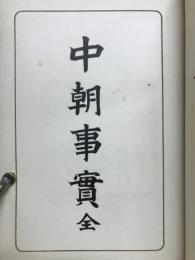 中朝事實全